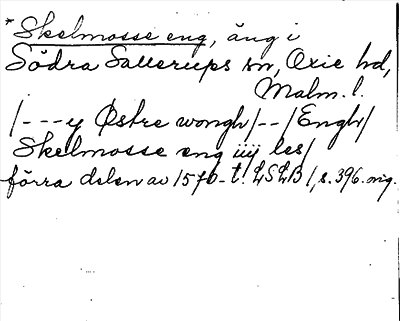 *Skelmosse eng, äng i
Södra Sallerups sn, Oxie hd,
Malm. l.
/---y Østre wongh/--/Engh/
Skelmosse eng iiij les/
förra delen av 1570-t. LSLB 1, s. 396. orig.